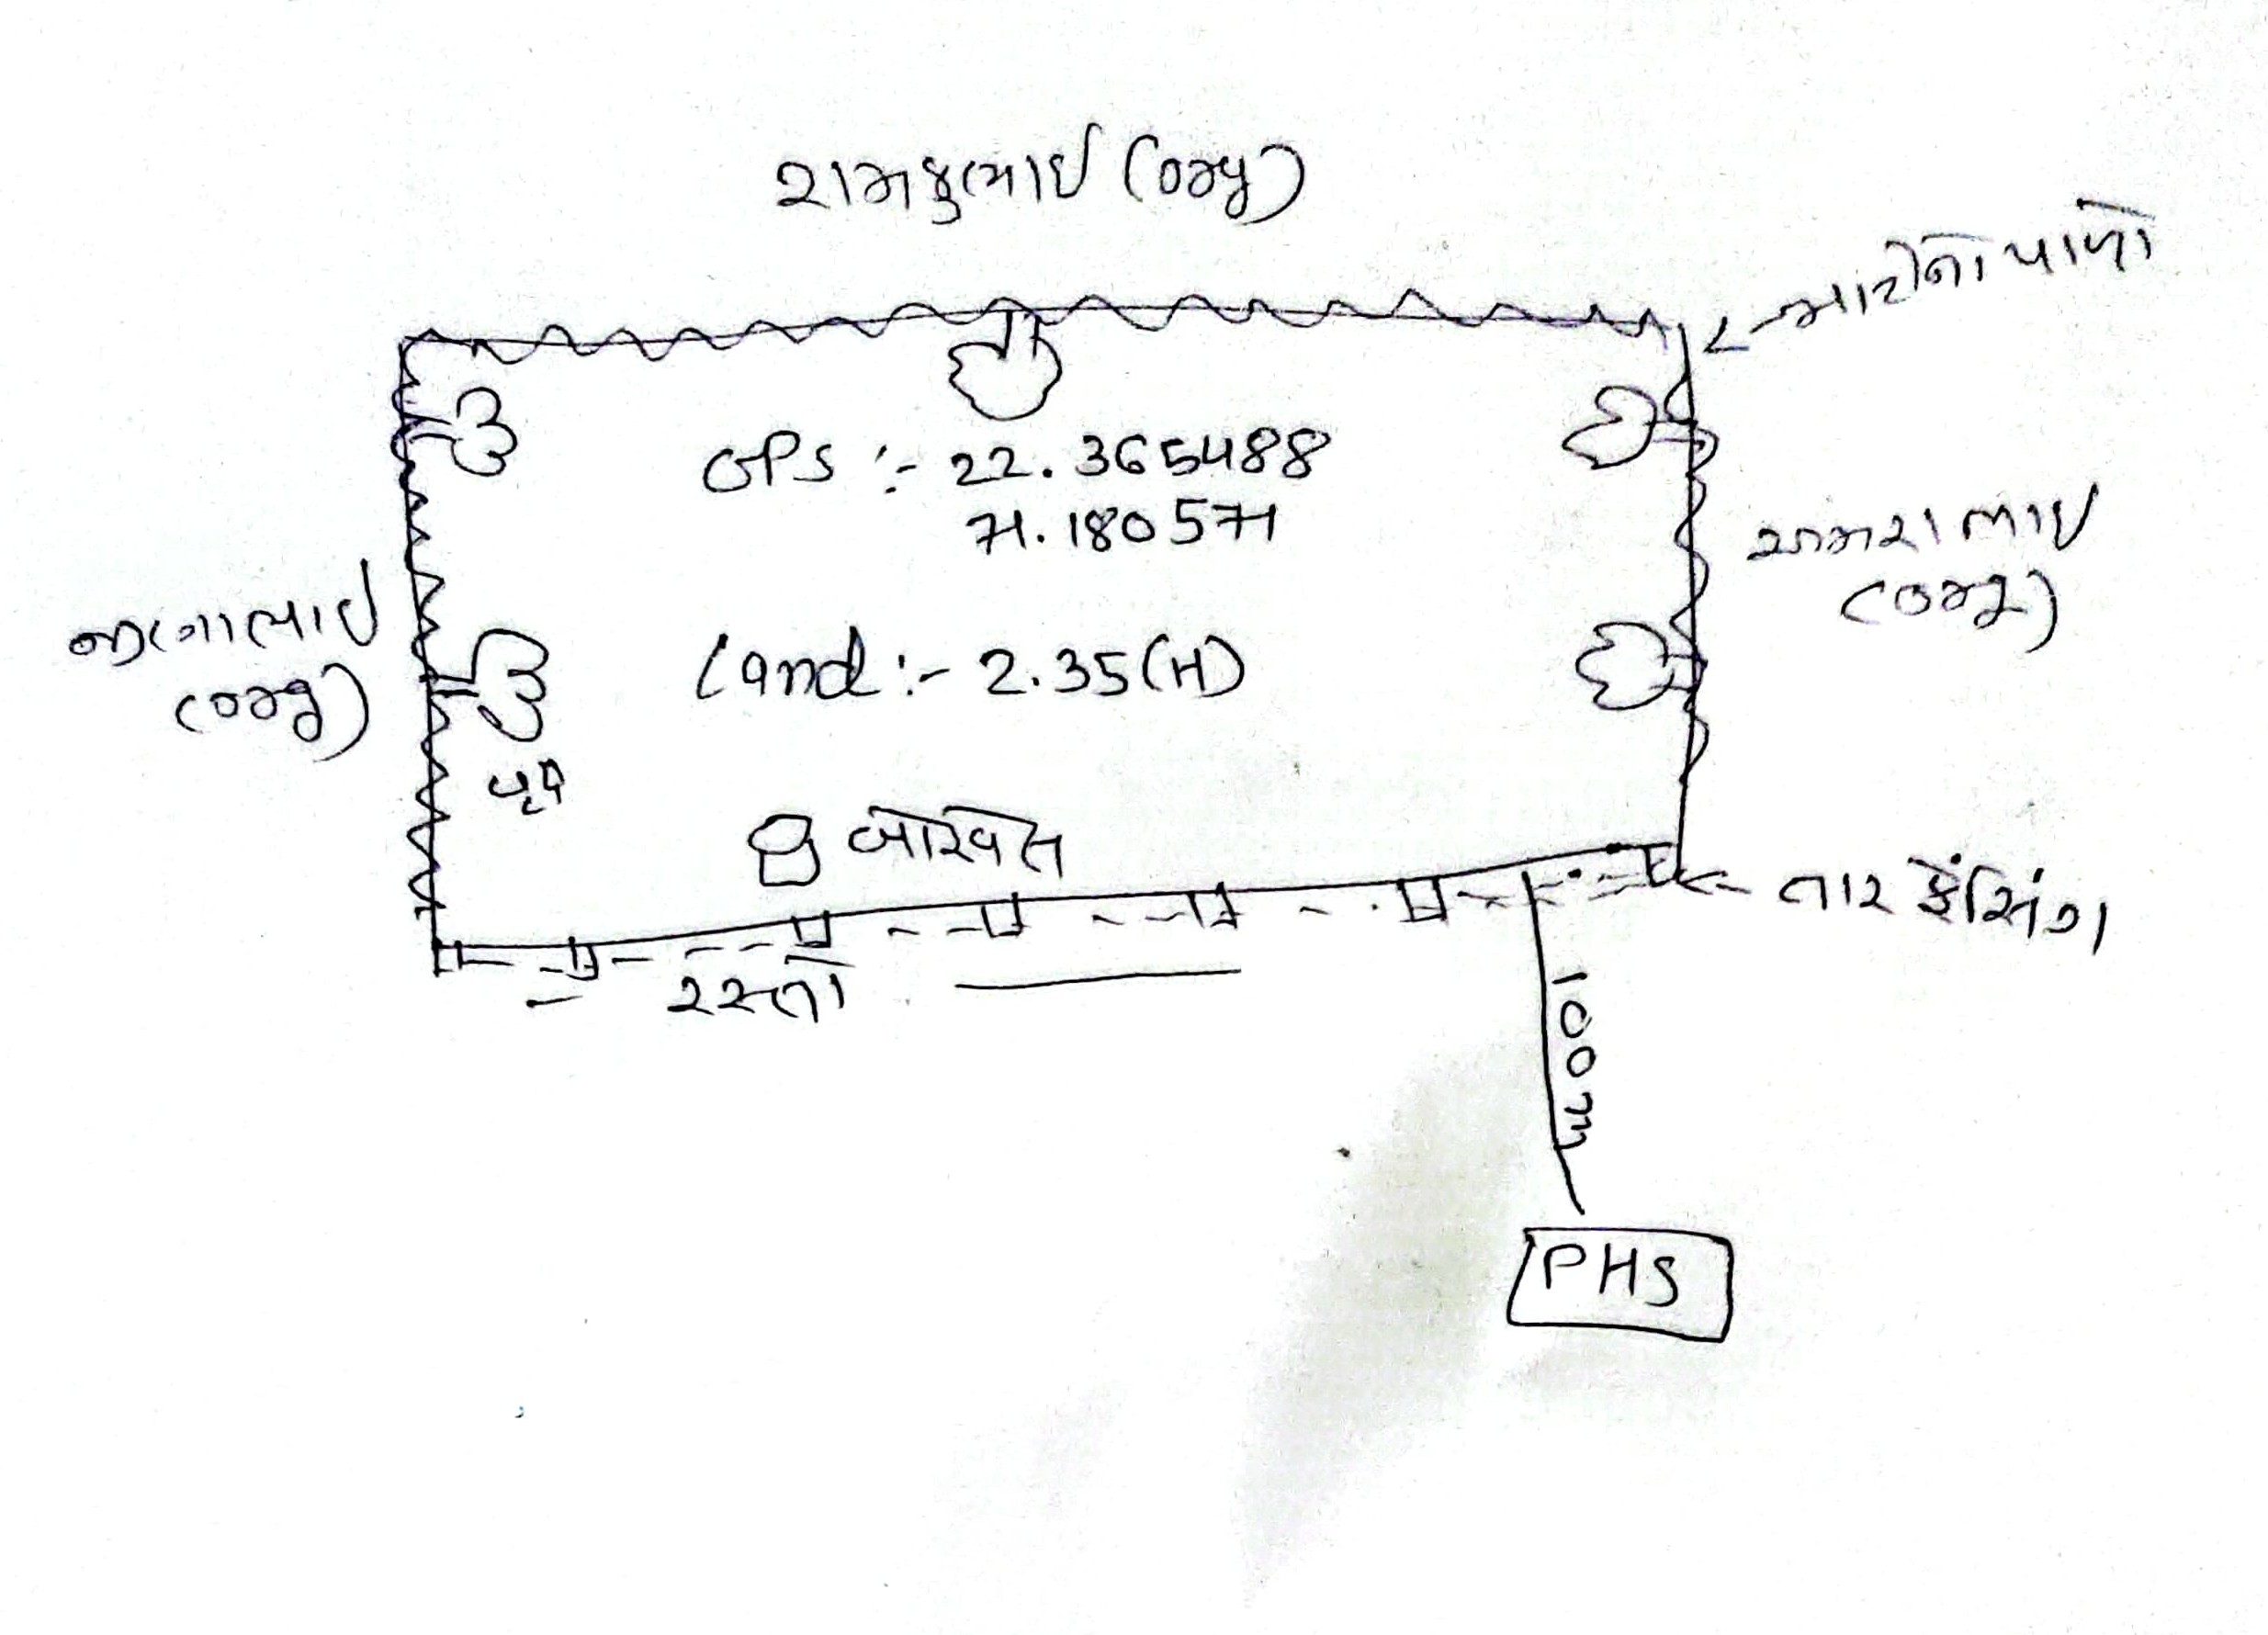 રામકુભાઈ (org)
માટીનો પાળો
GPS :- 22.365488
71.180571
અમરાભાઈ
(org)
(org)
Land :- 2.35(H)
વૃક્ષ
બોરવેલ
તાર ફેંસિંગ
રસ્તો
100m
PHS